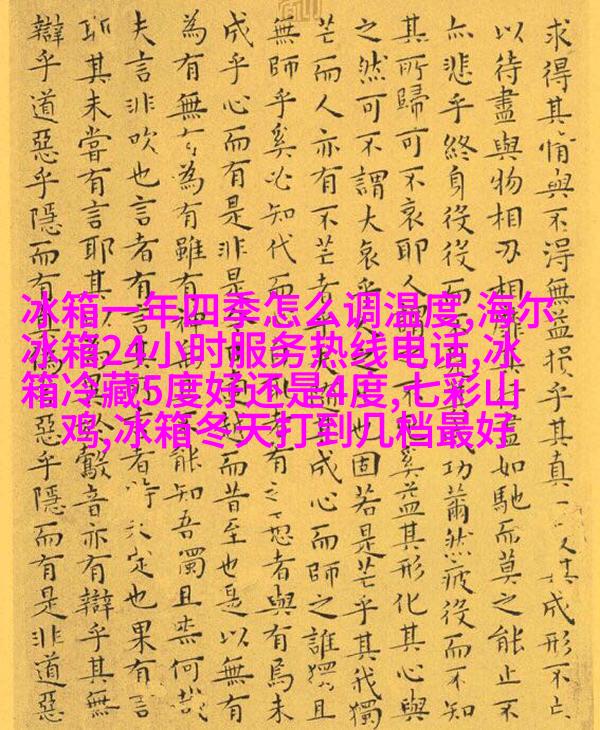 冰箱一年四季怎么调温度,海尔
冰箱24小时服务热线电话,冰
箱冷藏5度好还是4度,七彩山
鸡,冰箱冬天打到几档最好
求得其情與不得無益損乎其真一其成形不亡
以待盡與物相刃相靡其盡如馳而莫之能止不
亦悲乎終身役役而不功薾然疲役而不知
其所歸可不哀耶人謂奚益其形化其心與
之然可不謂大哀乎人也固若是芒乎其我獨
芒而人亦有不芒者乎夫成心而師之誰獨且
無師乎奚必知代而有之愚者與有焉未
成乎心而有是非是越而昔至也是以無有
為有無有為有雖有神能知吾獨且柰何哉
夫言非吹也言者有言其者特未定也果有言
耶其未嘗有言耶其鷇音亦有辯乎其無
辯乎道惡乎隱而有真惡乎隱而有是非道惡